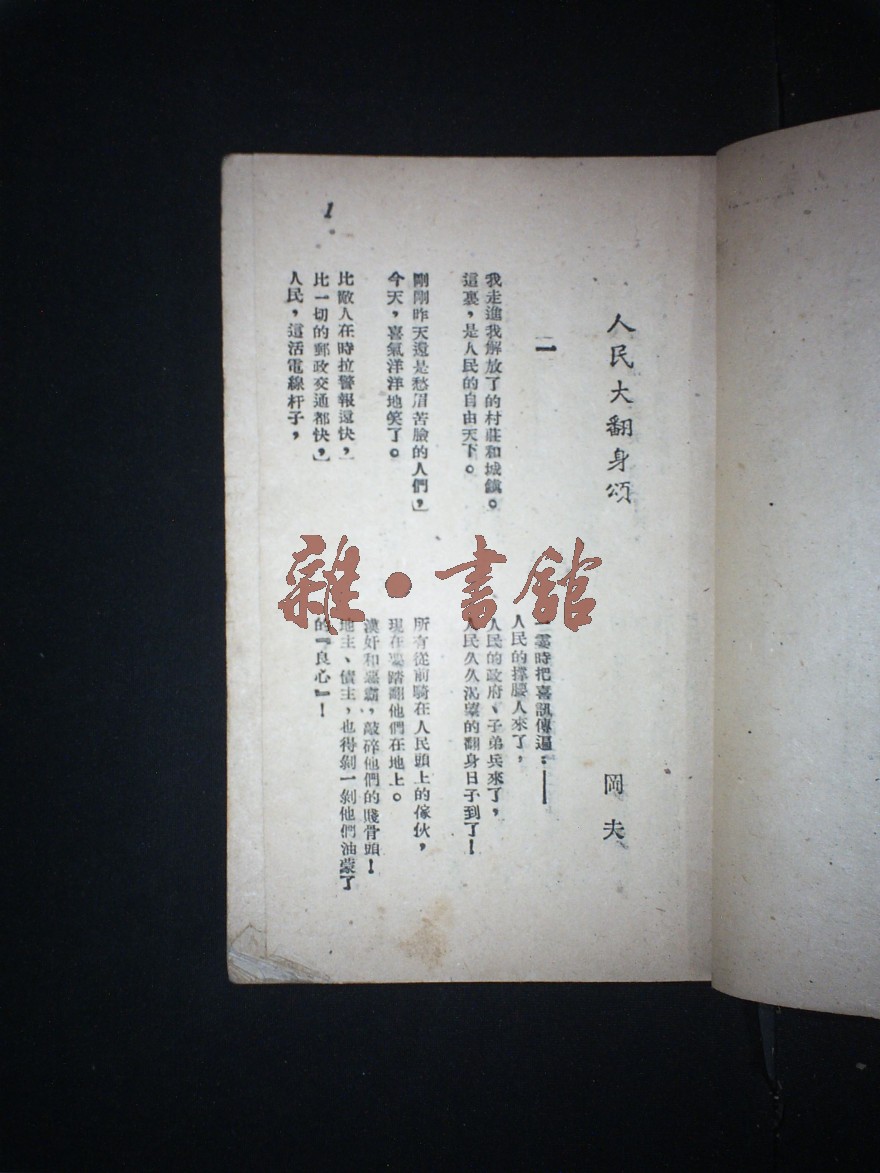 人民大翻身頌
岡夫
一
我走進我解放了的村莊和城鎮。
這裏,是人民的自由天下。
剛剛昨天還是愁眉苦臉的人們,
今天,喜氣洋洋地笑了。
比敵人在時拉警報還快,
比一切的郵政交通都快,
人民,這活電線杆子,
一霎時把喜訊傳遍:——
人民的撐腰人來了,
人民的政府、子弟兵來了,
人民久久渴望的翻身日子到了!
所有從前騎在人民頭上的傢伙,
現在要踏翻他們在地上。
漢奸和惡霸,敲碎他們的賤骨頭!
地主、債主,也得剝一剝他們油蒙了
的『良心』!
1
雜·書館